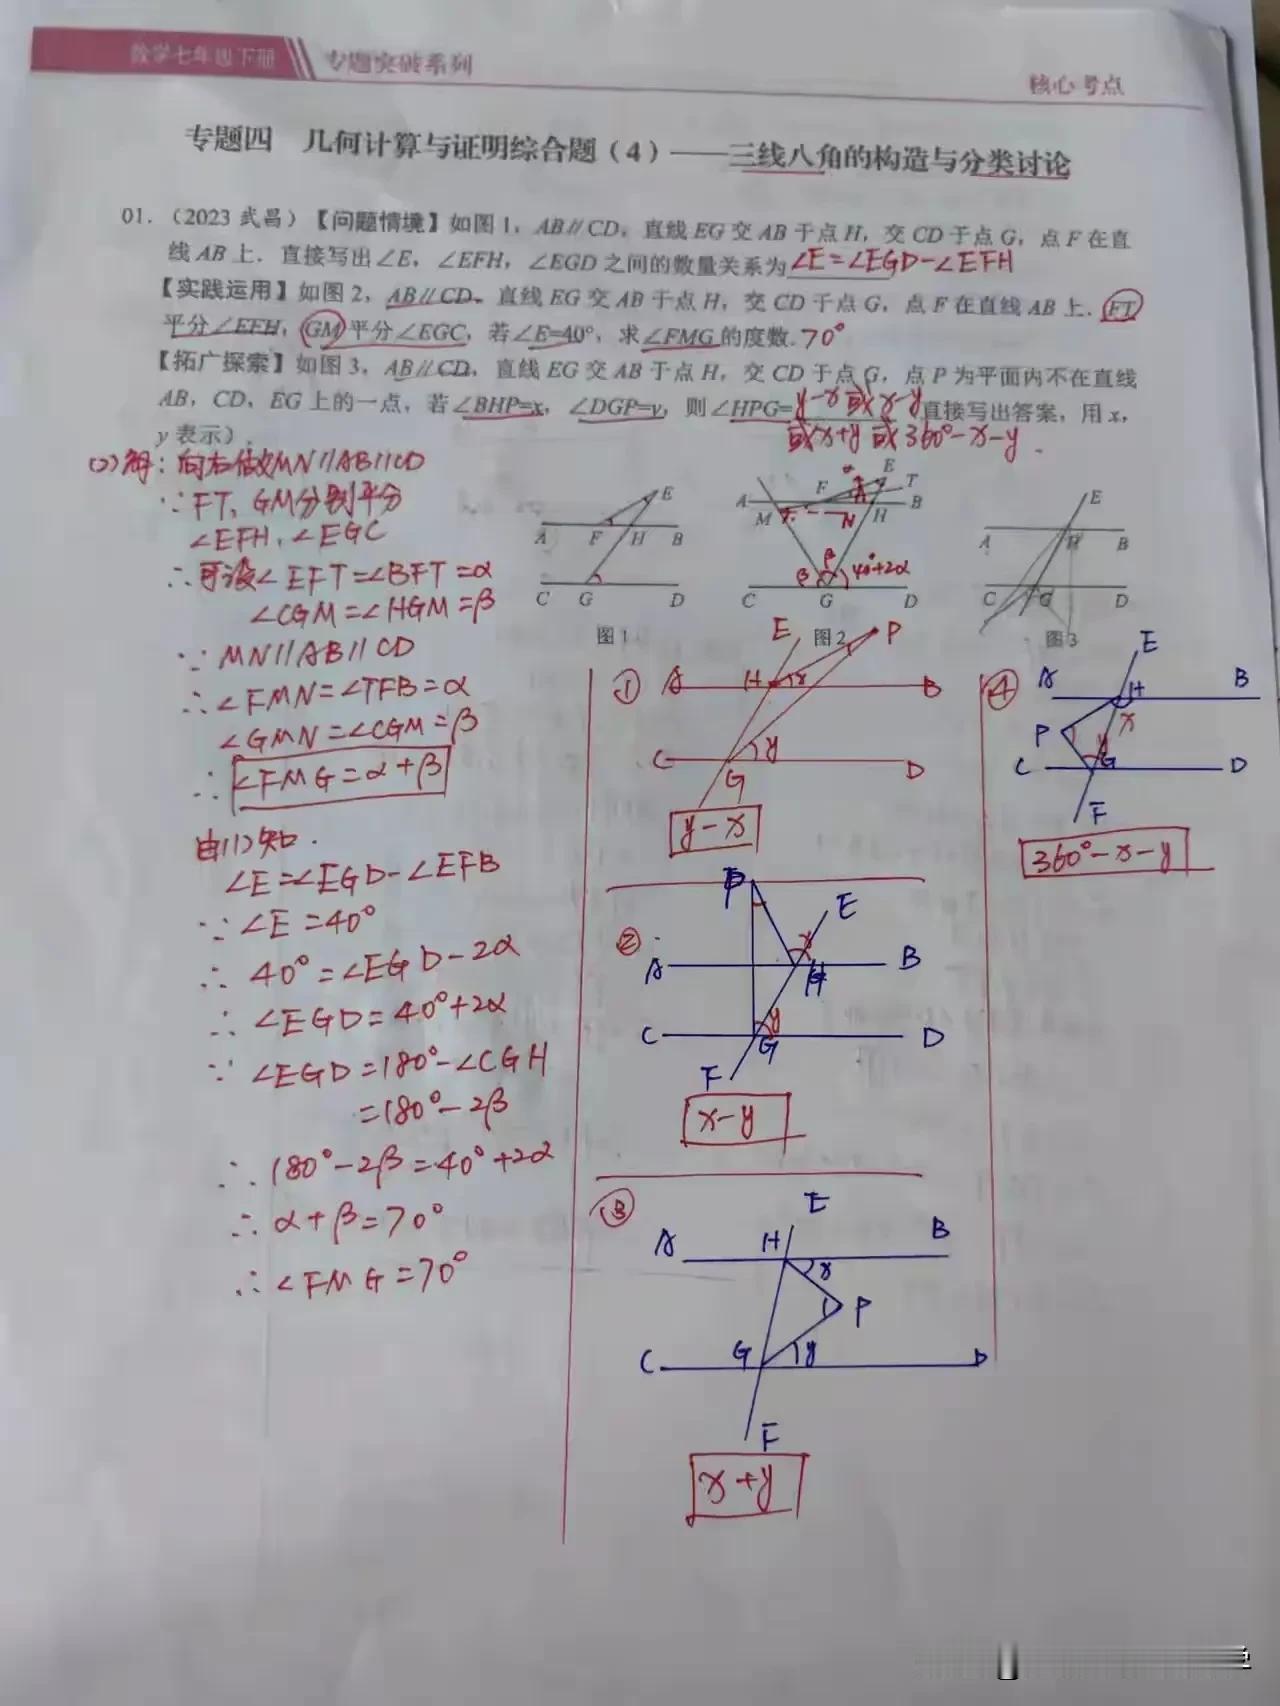 数学七年级下册
专题突破系列
核心考点
专题四 几何计算与证明综合题(4)——三线八角的构造与分类讨论
01.(2023武昌)【问题情境】如图1,AB∥CD,直线EG交AB于点H,交CD于点G,点F在直
线AB上.直接写出∠E,∠EFH,∠EGD之间的数量关系为∠E=∠EGD-∠EFH
【实践运用】如图2,AB∥CD,直线EG交AB于点H,交CD于点G,点F在直线AB上.FT
平分∠EFH,GM平分∠EGC,若∠E=40°,求∠FMG的度数.70°
【拓广探索】如图3,AB∥CD,直线EG交AB于点H,交CD于点G,点P为平面内不在直线
AB,CD,EG上的一点,若∠BHP=x,∠DGP=y,则∠HPG=y-x或x-y直接写出答案,用x,
y表示).
或x+y或360°-x-y.
(2)解:向右做MN//AB//CD
∵FT、GM分别平分
∠EFH、∠EGC
∴可设∠EFT=∠BFT=α
∠CGM=∠HGM=β
∵MN//AB//CD
∴∠FMN=∠TFB=α
∠GMN=∠CGM=β
∴∠FMG=α+β
由(1)知.
∠E=∠EGD-∠EFB
∵∠E=40°
∴40°=∠EGD-2α
∴∠EGD=40°+2α
∵∠EGD=180°-∠CGH
=180°-2β
∴180°-2β=40°+2α
∴α+β=70°
∴∠FMG=70°
E
A F H B
C G D
图1
E
A F T B
M N H
β β 40°+2α
C G D
图2
E
A H B
C G D
图3
① E P
A H x B
C y D
G
y-x
② P E
A x B
H
C y D
G
F
x-y
③ E
A H B
x
P
C G y D
F
x+y
④ E
A H B
P x
C y G D
F
360°-x-y